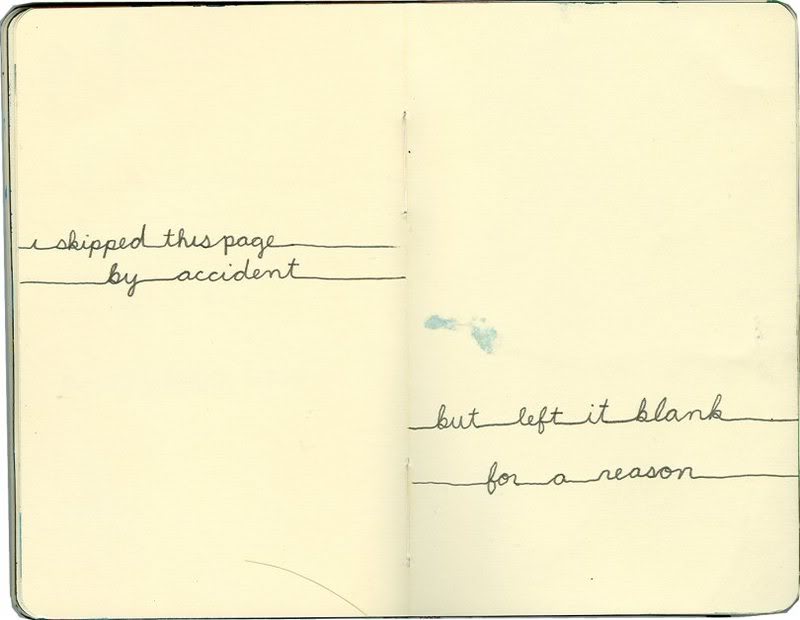 i skipped this page
by accident
but left it blank
for a reason